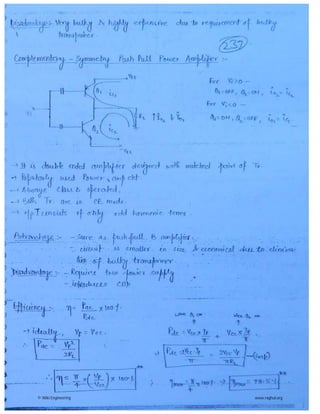 Disadvantage:- Very bulky & highly expensive due to requirement of bulky
transformer.
232
Complementary - Symmetry Push Pull Power Amplifier :-
For Vi>0 :-
Q1-OFF, Q2-ON,
For Vi<0 :-
Q1-ON, Q2-OFF,
→ It is double ended amplifier designed with matched pair of Tr.
→ Popularly used Power amp ckt.
→ Always Class B operated.
→ Both Tr. are in CC mode.
→ o/p I consists of only odd harmonic terms.
Advantage :- - Same as push pull B amplifier.
- circuit is smaller in size & economical due to elimina-
tion of bulky transformer
Disadvantage:- - Require two power supply
- introduces COD
Efficiency :- η = Pac/Pdc × 100%
→ ideally, Vp = Vcc.
Pac = Vp²/2RL
Pdc = Vcc × Ip/π + Vcc × Ip/π
η = π/4 × (Vp/Vcc) × 100%
© Wiki Engineering
www.raghul.org